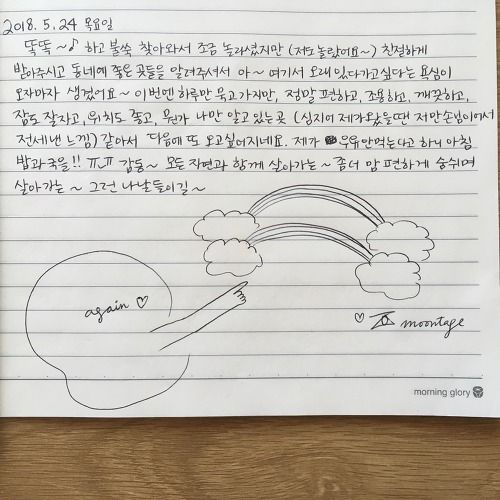 2018. 5. 24 목요일
똑똑~♪ 하고 불쑥 찾아와서 조금 놀라셨지만 (저도 놀랐어요~) 친절하게
받아주시고 동네에 좋은 곳들을 알려주셔서 아~ 여기서 오래 있다가고싶다는 욕심이
오자마자 생겼어요~ 이번엔 하루만 묵고가지만, 정말 편하고, 조용하고, 깨끗하고,
잠도 잘자고, 위치도 좋고, 뭔가 나만 알고 있는 곳 (심지어 제가 왔을땐 저만 손님이어서
전세낸 느낌) 같아서 다음에 또 오고싶어지네요. 제가 우유 안먹는다고 하니 아침
밥과 국을!! ㅠ.ㅠ 감동~ 모든 자연과 함께 살아가는~ 좀더 맘 편하게 숨쉬며
살아가는~ 그런 나날들이길~
again ♡
♡ moontage
morning glory